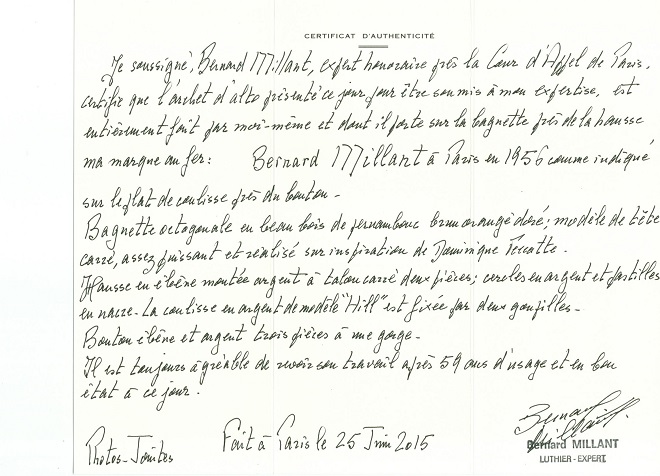 CERTIFICAT D'AUTHENTICITÉ
Je soussigné, Bernard Millant, expert honoraire près la Cour d'Appel de Paris,
certifie que l'archet d'alto présenté ce jour pour être soumis à mon expertise, est
entièrement fait par moi-même et dont il porte sur la baguette près de la hausse
ma marque au fer : Bernard Millant à Paris en 1956 comme indiqué
sur le plat de coulisse près du bouton -
Baguette octogonale en beau bois de pernambouc brun orangé doré; modèle de tête
carré, assez puissant et réalisé sur inspiration de Dominique Peccatte.
Hausse en ébène montée argent à talon carré deux pièces; cercles en argent et pastilles
en nacre - La coulisse en argent de modèle "Hill" est fixée par deux goupilles -
Bouton ébène et argent trois pièces à une gorge -
Il est toujours agréable de revoir son travail après 59 ans d'usage et en bon
état à ce jour.
Photos - Jointes Fait à Paris le 25 Juin 2015
Bernard Millant
Bernard MILLANT
LUTHIER - EXPERT